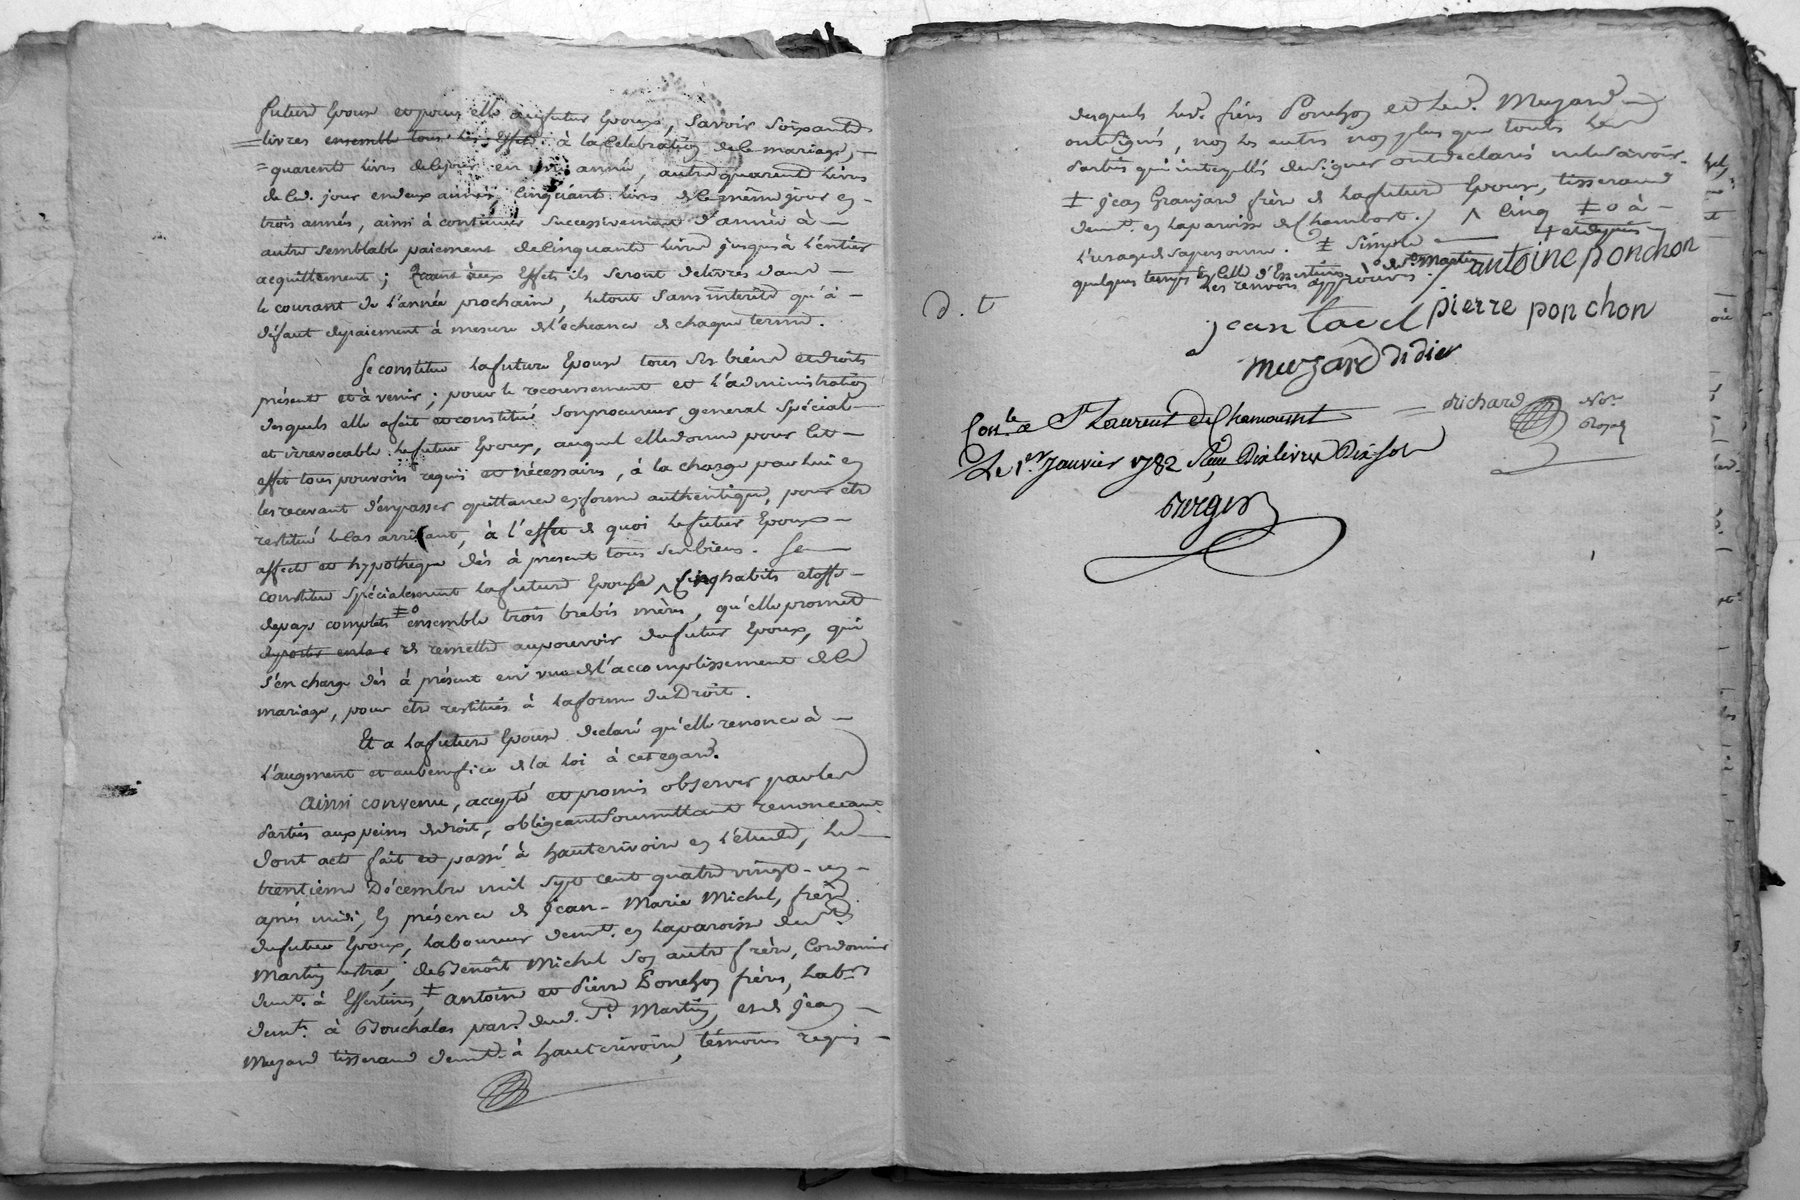 future Epouse et pour elle au futur Epoux, savoir soixante
livres ensemble tous les effets à la Célébration de le mariage,
quarente livres de ce jour en une année, autre quarente livres
de led. jour en deux années, Cinquante livres de le même jour en
trois années, ainsi à continuer successivement d'année à
autre semblable paiement de Cinquante livres jusqu'à l'entier
acquittement ; Quant aux Effets ils seront délivrés dans
le courant de l'année prochaine, le tout sans intérêts qu'à
défaut de paiement à mesure de l'échéance de chaque terme.
Se constitue la future Epouse tous ses biens et droits
présents et à venir ; pour le recouvrement et l'administration
desquels elle a fait et constitué son procureur général spécial
et irrévocable le futur Epoux, auquel elle donne pour cet
effet tous pouvoirs requis et nécessaires, à la charge par lui en
les recevant d'en passer quittance en forme authentique, pour être
restitué le cas arrivant, à l'effet de quoi le futur Epoux
affecte et hypothèque dès à présent tous ses biens. Se
constitue spécialement la future Epouse ^ Cinq habits etoffe
de pays complets ‡o ensemble trois brebis mères, qu'elle promet
de porter en la de remettre au pouvoir du futur Epoux, qui
s'en charge dès à présent en vue de l'accomplissement de le
mariage, pour être restitués à la forme du Droit.
Et a la future Epouse déclaré qu'elle renonce à
l'augment et au bénéfice de la loi à cet egard.
Ainsi convenu, accepté et promis observer par les
Parties aux peines de droit, obligeant soumettant renonceant
dont acte fait et passé à hauterivoire en l'étude, le
trentieme Décembre mil sept cent quatre vingt-un
après midi, En présence de Jean-Marie Michel, frère
du futur Epoux, laboureur demt. en la paroisse de St
Martin lestra, de Benoît Michel son autre frère, Cordonnier
demt. à Essertines, ‡ antoine et Pierre Ponchon frères, labrs
demts. à Bouchalas par. dud. St Martin, et de Jean
Muzard tisserand demt. à hauterivoire, témoins requis
desquels lesd. frères Ponchon et led. Muzard
ont signés, non les autres non plus que toutes les
Parties qui interpellés de signer ont déclarés ne le savoir.
‡ Jean Granjard frère de la future Epouse, tisserand
demt. en la paroisse de Chambost. / ^ Cinq ‡o à
l'usage de sa personne. ‡ simple + et depuis
quelques temps en celle d'Essertines o de St Martin
Les renvois approuvés /. antoine ponchon
d. t
jean tard pierre ponchon
muzard didier
drichard Nore
Royal
Conlé à St Laurent de Chamousset
Le 1er Janvier 1782 Reçu Dix livres Dix sols
Berger